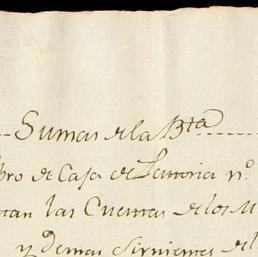 Sumas de la Bta
bro de Caxa de n.º
tan las Cuentas de los M
y demas Sirvientes del